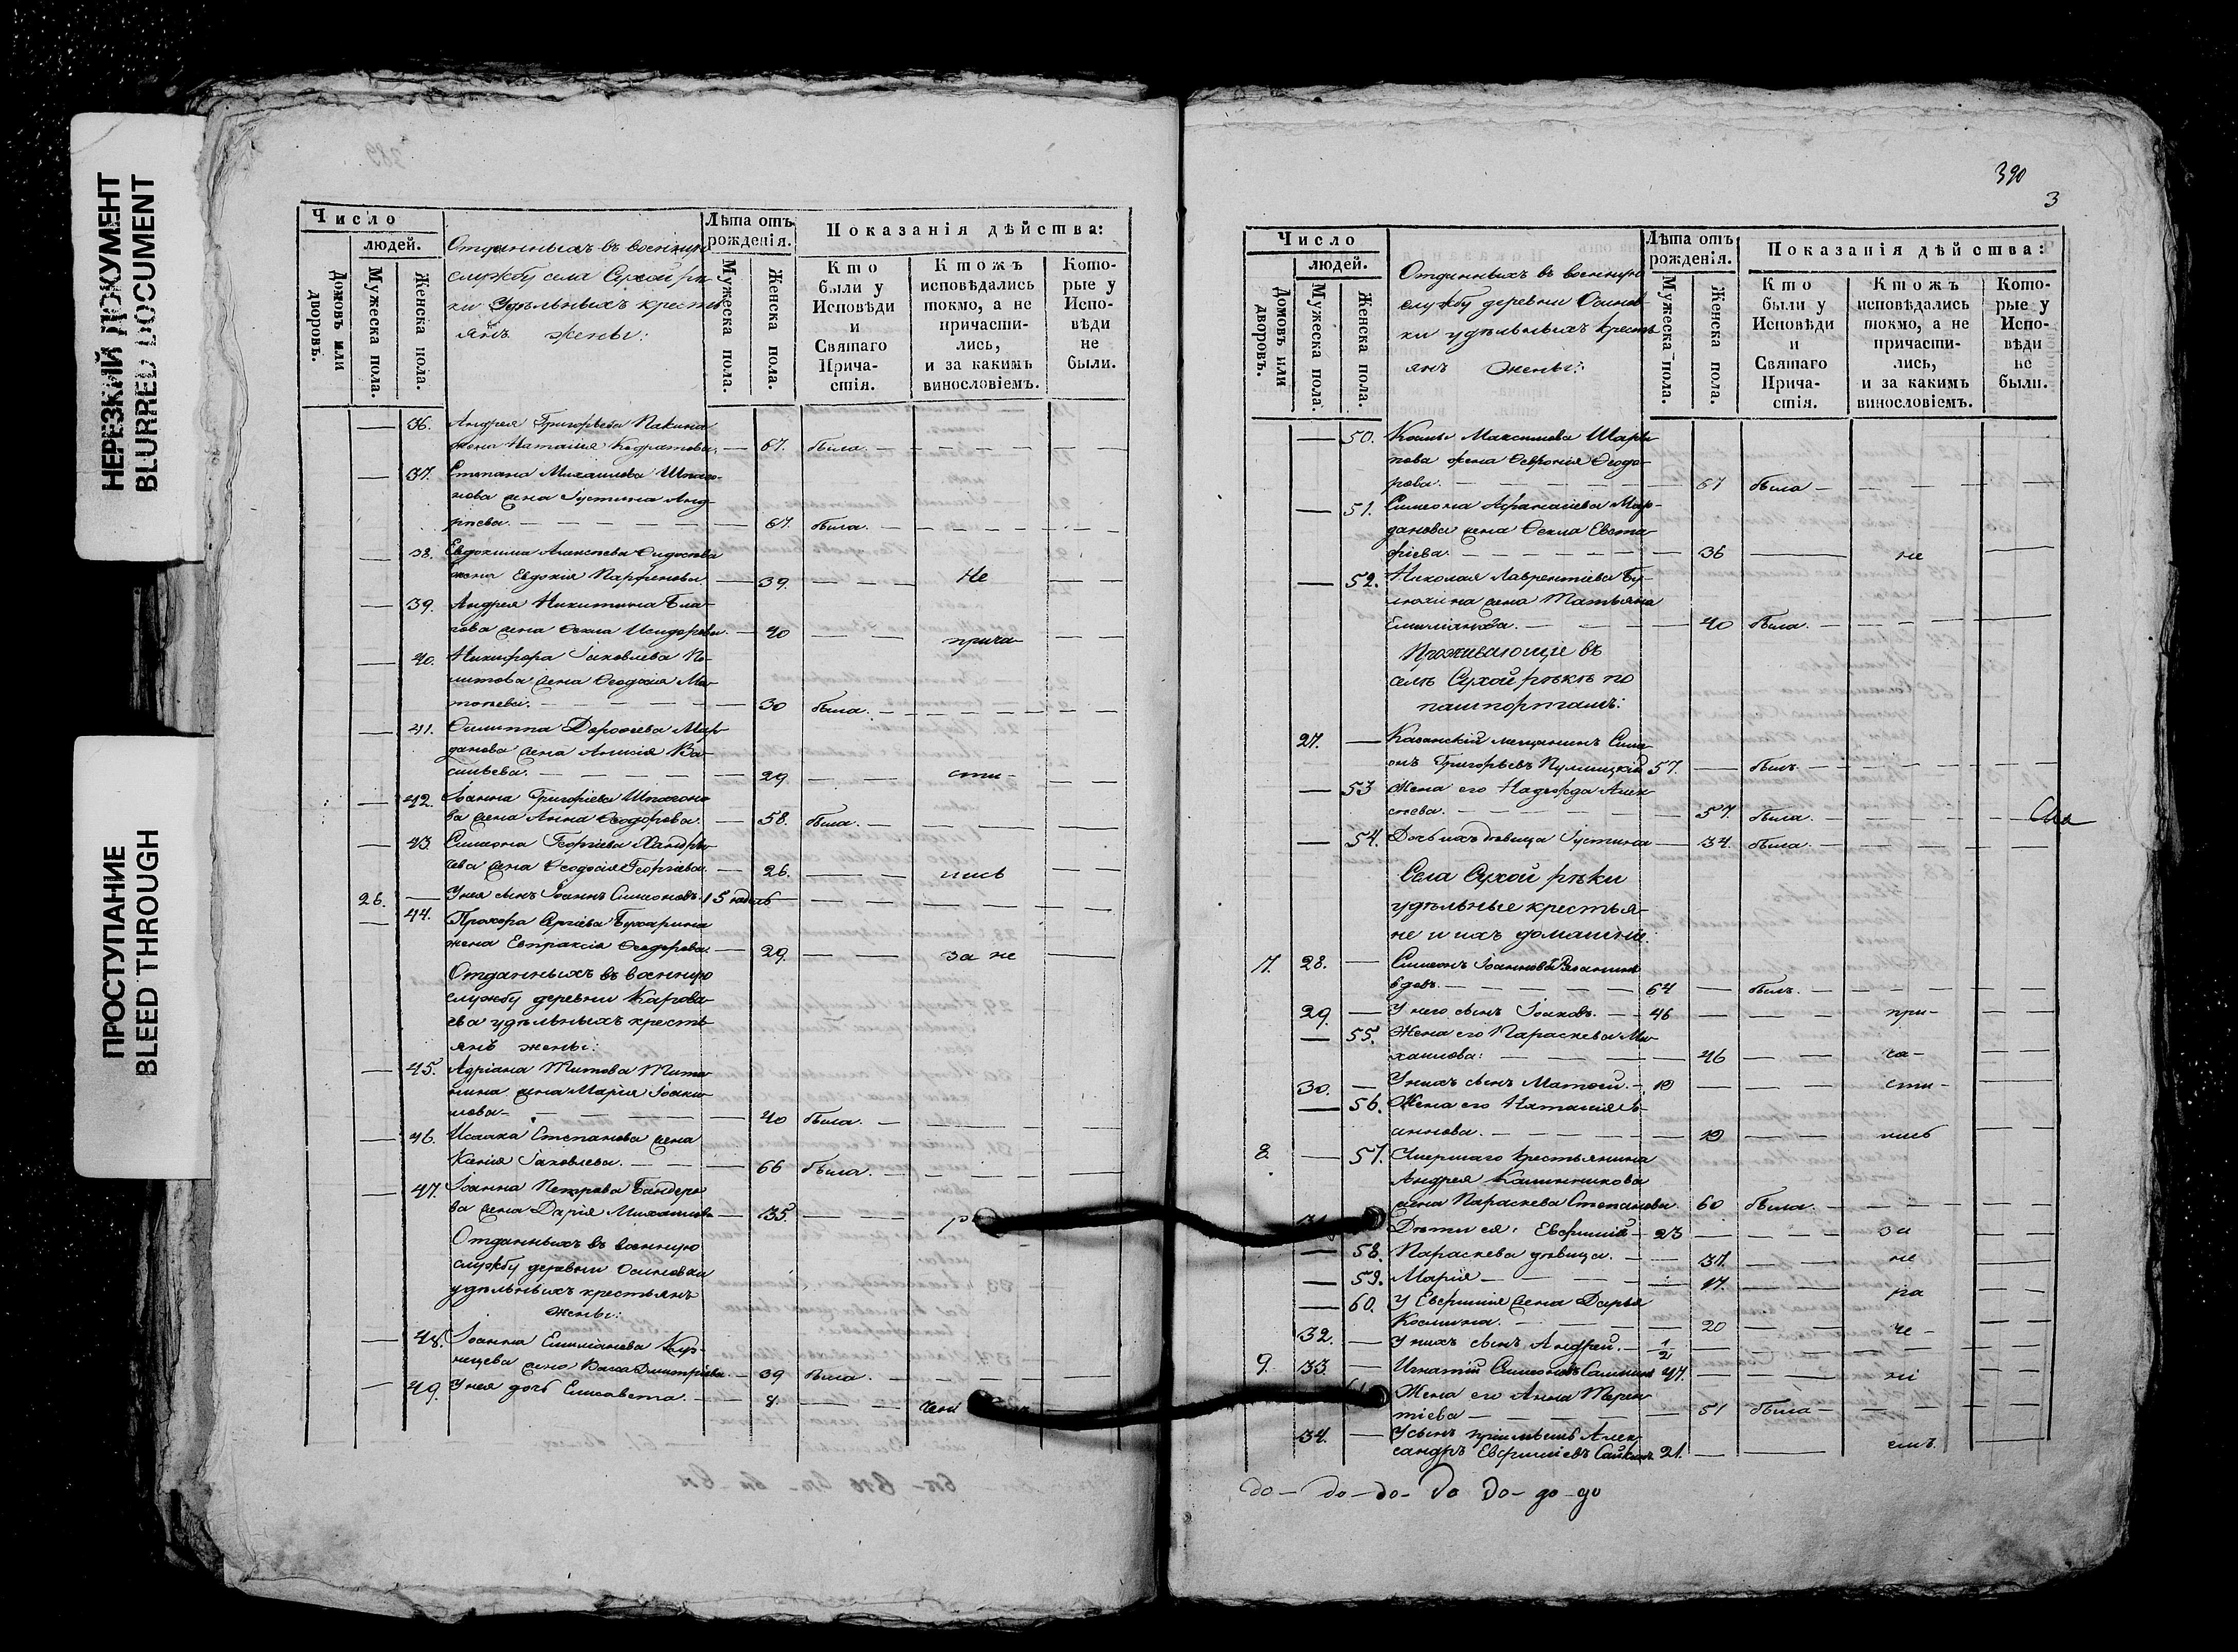 НЕРЕЗКИЙ ДОКУМЕНТ
BLURRED DOCUMENT
ПРОСТУПАНИЕ
BLEED THROUGH
389
Число
людей.
Домовъ или дворовъ.
Мужеска пола.
Женска пола.
Отданныхъ въ военную
службу села Сухой рѣ-
ки Удѣльныхъ кресть
янъ жены:
Лѣта отъ рожденія.
Мужеска пола.
Женска пола.
Показанія дѣйства:
Кто были у Исповѣди и Святаго Прича-стія.
Ктожъ исповѣдались токмо, а не причасти-лись, и за какимъ винословіемъ.
Кото-рые у Испо-вѣди не были.
36. Андрея Григорьева
жена Наталія 67. была.
37. Степана Михаилова
нова жена Іустина Анд
рѣева. 67. была.
38. Евдокима Алексѣева
жена Евдокія Парфенова. 39. Не
39. Андрея Никитина
жена Ѳекла Исидорова. 40 прича
40. Никифора Іаковлева По-
литова жена Ѳеодосія
30 была.
41. Филиппа Дороѳеева Мар
данова жена Анисія Ва-
сильева. 29. сти-
42. Іоанна Григоріева
ва жена Анна Ѳеодорова. 58. была.
43. Симеона Георгіева
жена Ѳеодосія Георгіева. 26. лись
26. У нея сынъ Іоаннъ Симеоновъ. 1 5
44. Прохора Сергіева Бухарина
жена Евпраксія Ѳеодорова. 29. за не
Отданныхъ въ военную
службу деревни
ева удѣльныхъ кресть
янъ жены:
45. Адріана Титова
нина жена Марія Іоаки
мова 40 была.
46. Исаака Степанова жена
Ксенія Іаковлева. 66 была.
47. Іоанна Петрова
ва жена Дарія Михаилова 35.
Отданныхъ въ военную
службу деревни Осиновки
удѣльныхъ крестьянъ
жены:
48. Іоанна Емиліанова Куз-
нецова жена Васса Димитріева 39 была.
49. У нея дочь Елисавета. 8.
390
3
Число
людей.
Домовъ или дворовъ.
Мужеска пола.
Женска пола.
Отданныхъ въ военную
службу деревни Осинов-
ки удѣльныхъ кресть
янъ жены:
Лѣта отъ рожденія.
Мужеска пола.
Женска пола.
Показанія дѣйства:
Кто были у Исповѣди и Святаго Прича-стія.
Ктожъ исповѣдались токмо, а не причасти-лись, и за какимъ винословіемъ.
Кото-рые у Испо-вѣди не были.
50. Козмы Максимова Шары
пова жена Ѳевронія Ѳеодо-
рова. 67 была
51. Симеона Аѳанасіева Мар-
данова жена Ѳекла Евста-
фіева. 36 не
52. Николая Лаврентіева
жена Татьяна
Емиліанова. 40 была.
Проживающіе въ
селѣ Сухой рѣкѣ по
пашпортамъ:
27. Казанскій мещанинъ Симе
онъ Григорьевъ 57. былъ.
53 Жена его Надежда Алек
сѣева. 57. была.
54. Дочь ихъ дѣвица Іустина 34. была.
Села Сухой рѣки
удѣльные крестья-
не и ихъ домашніе:
7. 28. Симеонъ Іоанновъ
вдовъ. 64 былъ.
29. У него сынъ Іоаковъ. 46 при-
55. Жена его Параскева Ми
хаилова: 46 ча-
30. У нихъ сынъ Матѳей. 19 сти-
56. Жена его Наталія Іо-
аннова. 19 лись
8. 57. Умершаго крестьянина
Андрея Калинникова
жена Параскева Степанова 60 была.
31. Дѣти ея: Евфимій 23 за
58. Параскева дѣвица. 37. не
59. Марія 17. ра
60. У Евфимія жена Дарья
Козмина. 20 че-
32. У нихъ сынъ Андрей. 1/2
9. 33. Игнатій Симеоновъ 47. ні
Жена его Анна Терен
тіева 51 была
34. Усынъ пріемышъ Алек
сандръ Евфиміевъ 21. емъ.
до - до - до - до до - до - до